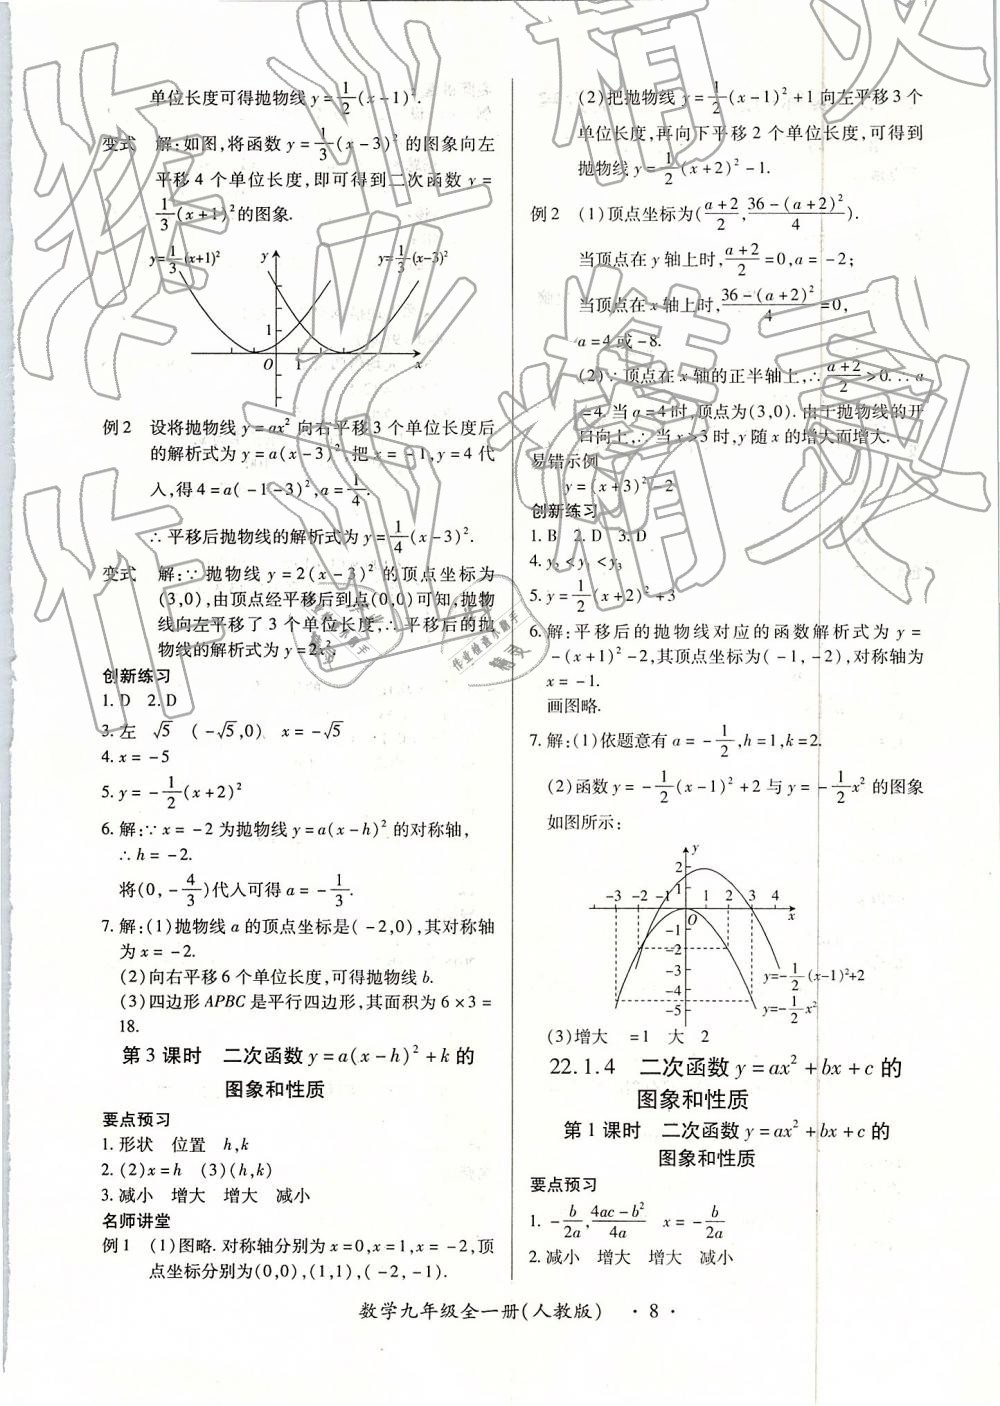 单位长度可得抛物线 y=1/2(x-1)².
变式 解:如图,将函数 y=1/3(x-3)² 的图象向左
平移 4 个单位长度,即可得到二次函数 y=
1/3(x+1)²的图象.
y=1/3(x+1)² y y=1/3(x-3)²
1
O 1 x
例 2 设将抛物线 y=ax² 向右平移 3 个单位长度后
的解析式为 y=a(x-3)².把 x=-1,y=4 代
入,得 4=a(-1-3)²,a=1/4.
∴平移后抛物线的解析式为 y=1/4(x-3)².
变式 解:∵抛物线 y=2(x-3)² 的顶点坐标为
(3,0),由顶点经平移后到点(0,0)可知,抛物
线向左平移了 3 个单位长度,∴平移后的抛
物线的解析式为 y=2x².
创新练习
1. D 2. D
3. 左 √5 (-√5,0) x=-√5
4. x=-5
5. y=-1/2(x+2)²
6. 解:∵x=-2 为抛物线 y=a(x-h)² 的对称轴,
∴h=-2.
将(0,-4/3)代人可得 a=-1/3.
7. 解:(1)抛物线 a 的顶点坐标是(-2,0),其对称轴
为 x=-2.
(2)向右平移 6 个单位长度,可得抛物线 b.
(3)四边形 APBC 是平行四边形,其面积为 6×3=
18.
第 3 课时 二次函数 y=a(x-h)²+k 的
图象和性质
要点预习
1. 形状 位置 h,k
2. (2)x=h (3)(h,k)
3. 减小 增大 增大 减小
名师讲堂
例 1 (1)图略.对称轴分别为 x=0,x=1,x=-2,顶
点坐标分别为(0,0),(1,1),(-2,-1).
(2)把抛物线 y=1/2(x-1)²+1 向左平移 3 个
单位长度,再向下平移 2 个单位长度,可得到
抛物线 y=1/2(x+2)²-1.
例 2 (1)顶点坐标为(a+2/2,36-(a+2)²/4).
当顶点在 y 轴上时,a+2/2=0,a=-2;
当顶点在 x 轴上时,36-(a+2)²/4=0,
a=4 或-8.
(2)∵顶点在 x 轴的正半轴上,∴a+2/2>0.∴a
=4.当 a=4 时,顶点为(3,0).由于抛物线的开
口向上,∴当 x>3 时,y 随 x 的增大而增大.
易错示例
y=(x+3)²-2
创新练习
1. B 2. D 3. D
4. y₂<y₁<y₃
5. y=1/2(x+2)²+3
6. 解:平移后的抛物线对应的函数解析式为 y=
-(x+1)²-2,其顶点坐标为(-1,-2),对称轴为
x=-1.
画图略.
7. 解:(1)依题意有 a=-1/2,h=1,k=2.
(2)函数 y=-1/2(x-1)²+2 与 y=-1/2x² 的图象
如图所示:
y
2
1
-3 -2 -1 O 1 2 3 4 x
-1
-2
-3
-4
-5
y=-1/2(x-1)²+2
y=-1/2x²
(3)增大 =1 大 2
22.1.4 二次函数 y=ax²+bx+c 的
图象和性质
第 1 课时 二次函数 y=ax²+bx+c 的
图象和性质
要点预习
1. -b/2a,4ac-b²/4a x=-b/2a
2. 减小 增大 增大 减小
数学九年级全一册(人教版) ·8·
作业精灵
作业精灵